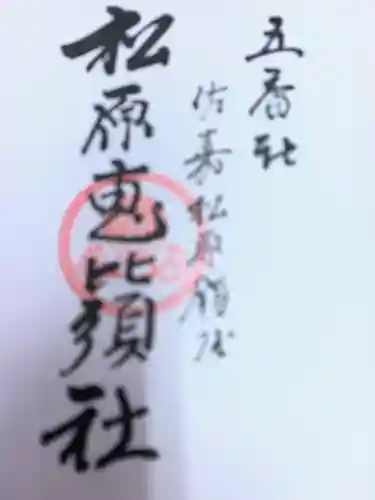 五番社
佐嘉松原
松原恵比須社